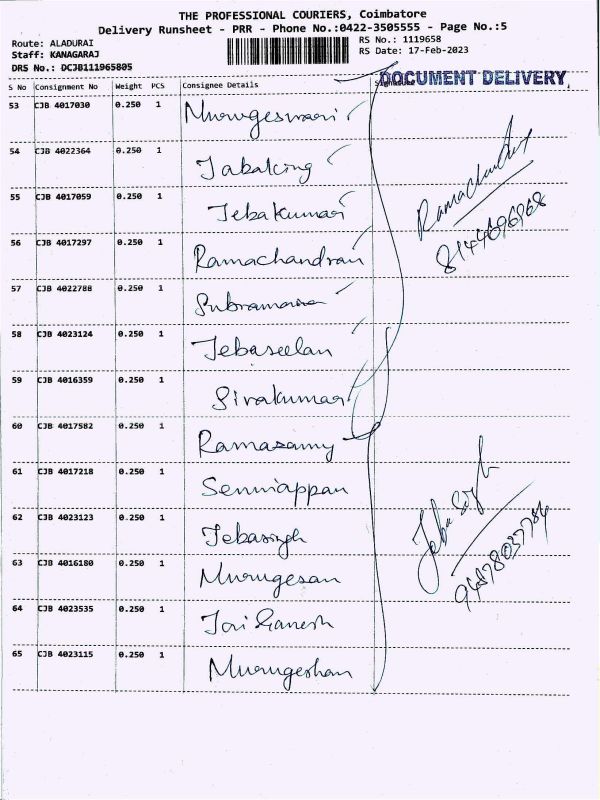 THE PROFESSIONAL COURIERS, Coimbatore
Delivery Runsheet - PRR - Phone No.:0422-3505555 - Page No.:5
Route: ALADURAI
RS No.: 1119658
Staff: KANAGARAJ
RS Date: 17-Feb-2023
DRS No.: DCJB111965805
DOCUMENT DELIVERY
S No Consignment No Weight PCS Consignee Details Signature
53 CJB 4017030 0.250 1 Murugeswari
54 CJB 4022364 0.250 1 Jabaking
55 CJB 4017059 0.250 1 Jebakumar
56 CJB 4017297 0.250 1 Ramachandran
57 CJB 4022788 0.250 1
58 CJB 4023124 0.250 1 Jebaseelan
59 CJB 4016359 0.250 1 Sivakumar
60 CJB 4017582 0.250 1 Ramasamy
61 CJB 4017218 0.250 1 Senniappan
62 CJB 4023123 0.250 1 Jebasingh
63 CJB 4016180 0.250 1 Murugesan
64 CJB 4023535 0.250 1 Jai Ganesh
65 CJB 4023115 0.250 1 Murugeshan